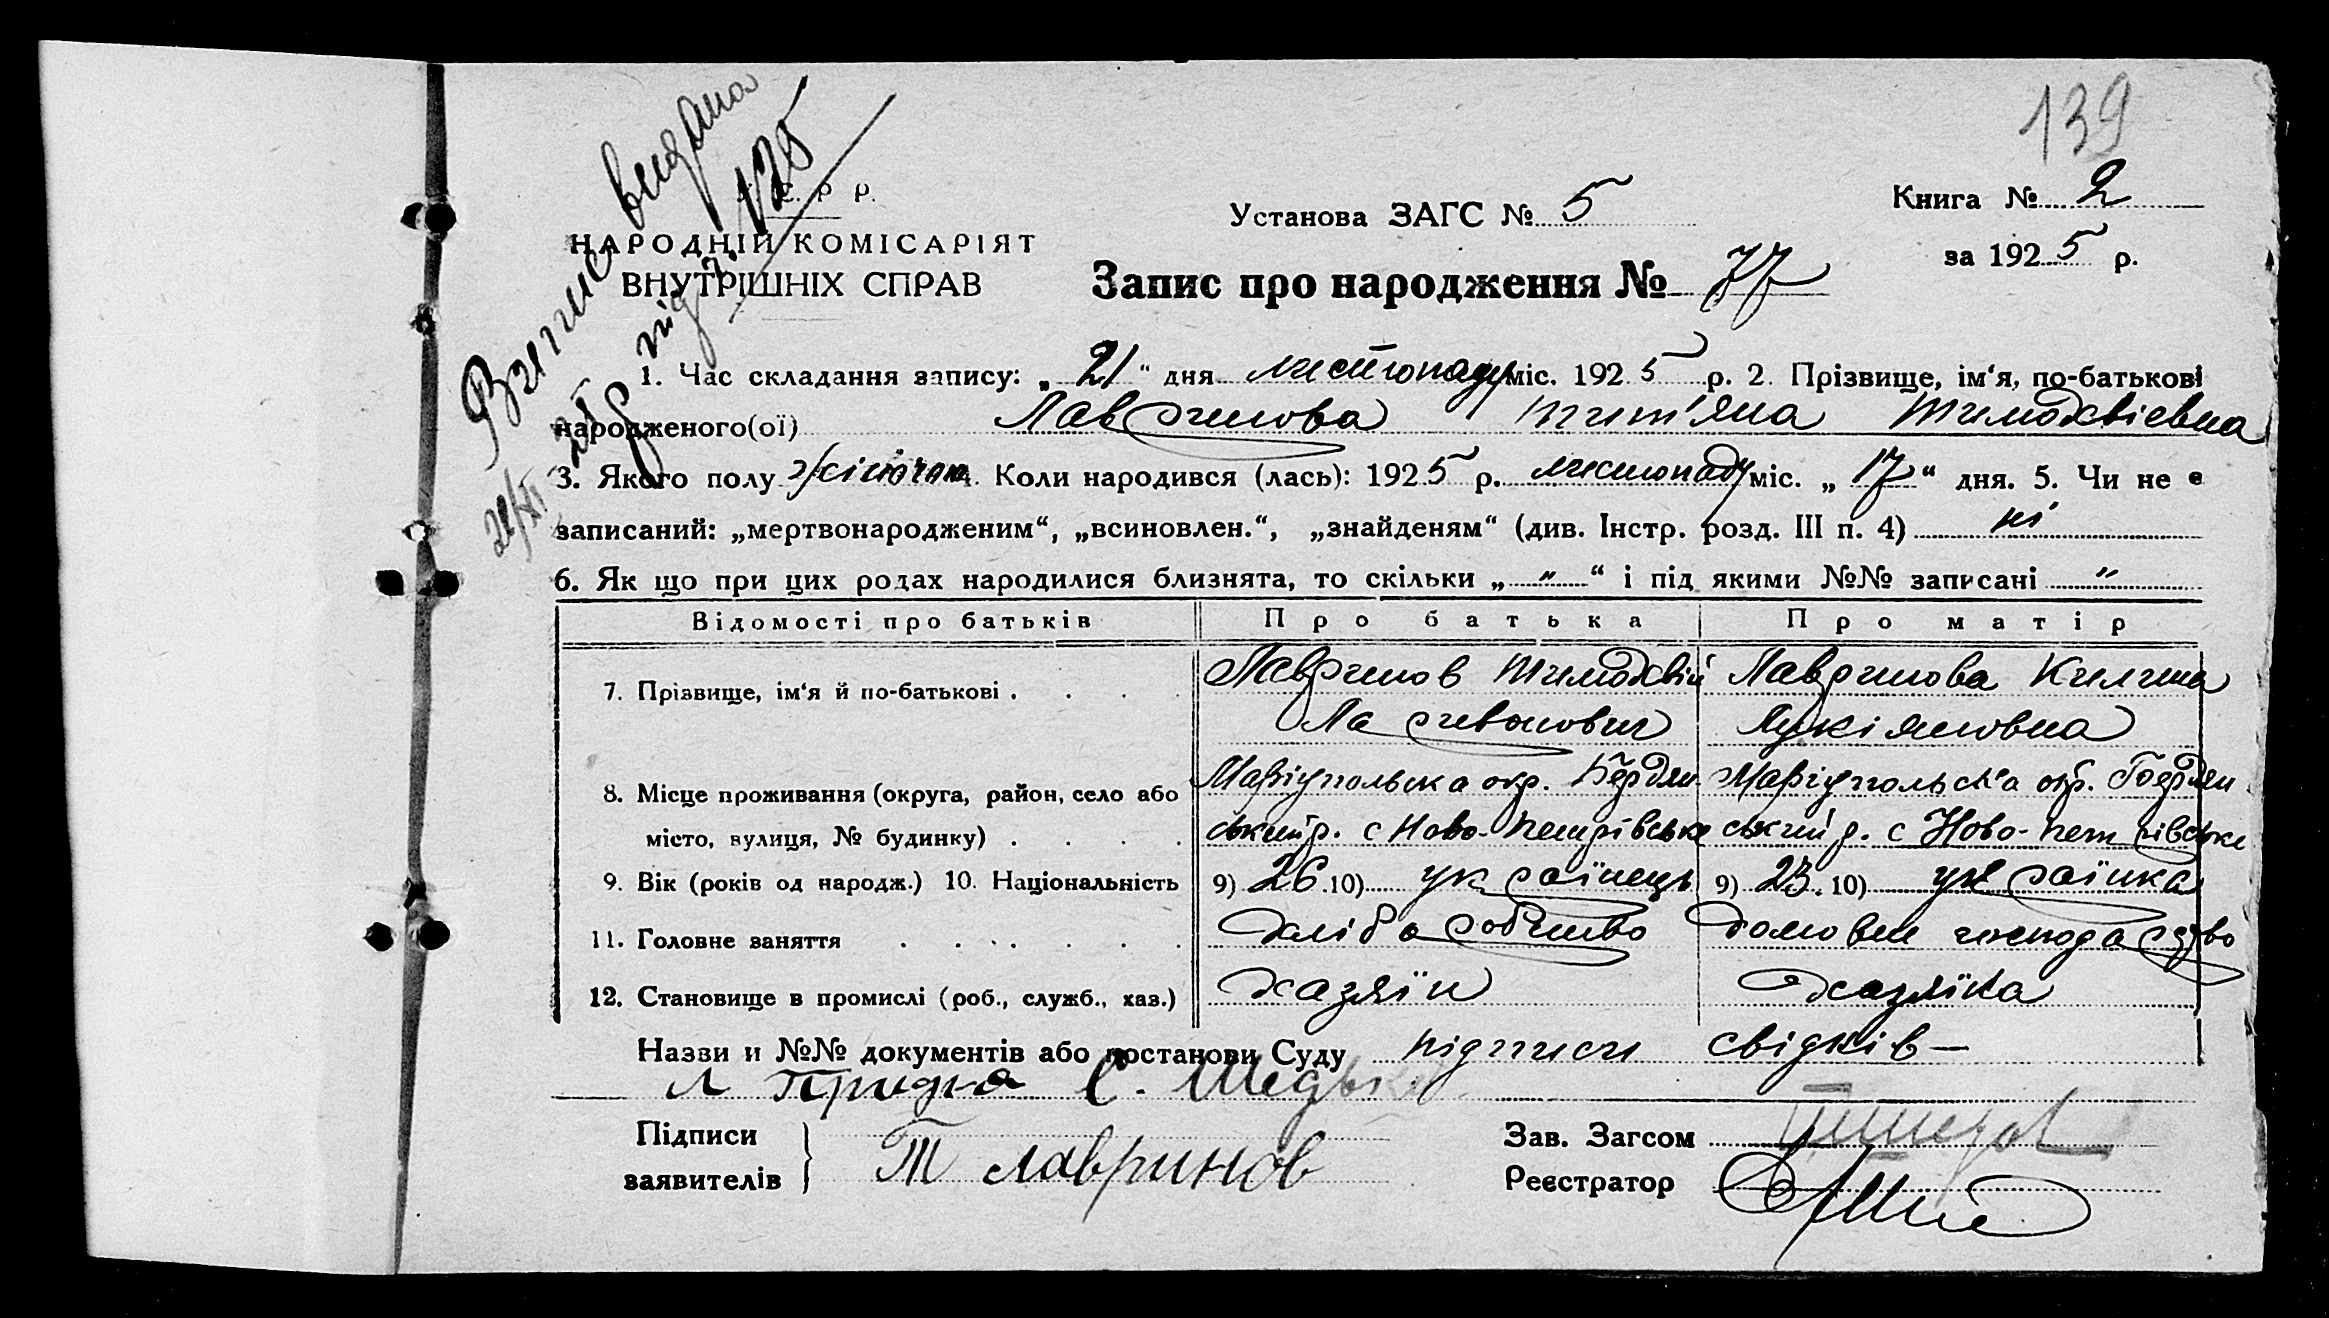 139
Випис видана
під ч. 125
21/XI 25 р
С. Р Р.
НАРОДНІЙ КОМІСАРІЯТ
ВНУТРІШНІХ СПРАВ
Установа ЗАГС № 5
Книга № 2
за 1925 р.
Запис про народження № 77
1. Час складання запису: „ 21 “ дня листопаду міс. 1925 р. 2. Прізвище, ім‘я, по-батькові
народженого(ої) Лавринова Тит'яна Тимохвієвна
3. Якого полу жіночого Коли народився (лась): 1925 р. листопаду міс. „ 17 “ дня. 5. Чи не є
записаний: „мертвонародженим“, „всиновлен.“, „знайденям“ (див. Інстр. розд. III п. 4) ні
6. Як що при цих родах народилися близнята, то скільки „ " “ і під якими №№ записані "
Відомості про батьків Про батька Про матір
7. Прізвище, ім‘я й по-батькові . Лавринов Тимохвій Лавринова Килина
Ларивонович Лукіяновна
8. Місце проживання (округа, район, село або Маріупольська окр. Бердян- Маріупольська окр. Бердян
місто, вулиця, № будинку) . ський р. с Ново-Петрівське ський р. с Ново-Петрівське
9. Вік (років од народж.) 10. Національність 9) 26 10) українець 9) 23 10) українка
11. Головне заняття хліборобство домовне господарство
12. Становище в промислі (роб., служб., хаз.) хазяїн хазяїка
Назви и №№ документів або постанови Суду підписи свідків —
Л Придка С.
Підписи
заявителів } Т Лавринов
Зав. Загсом
Реєстратор